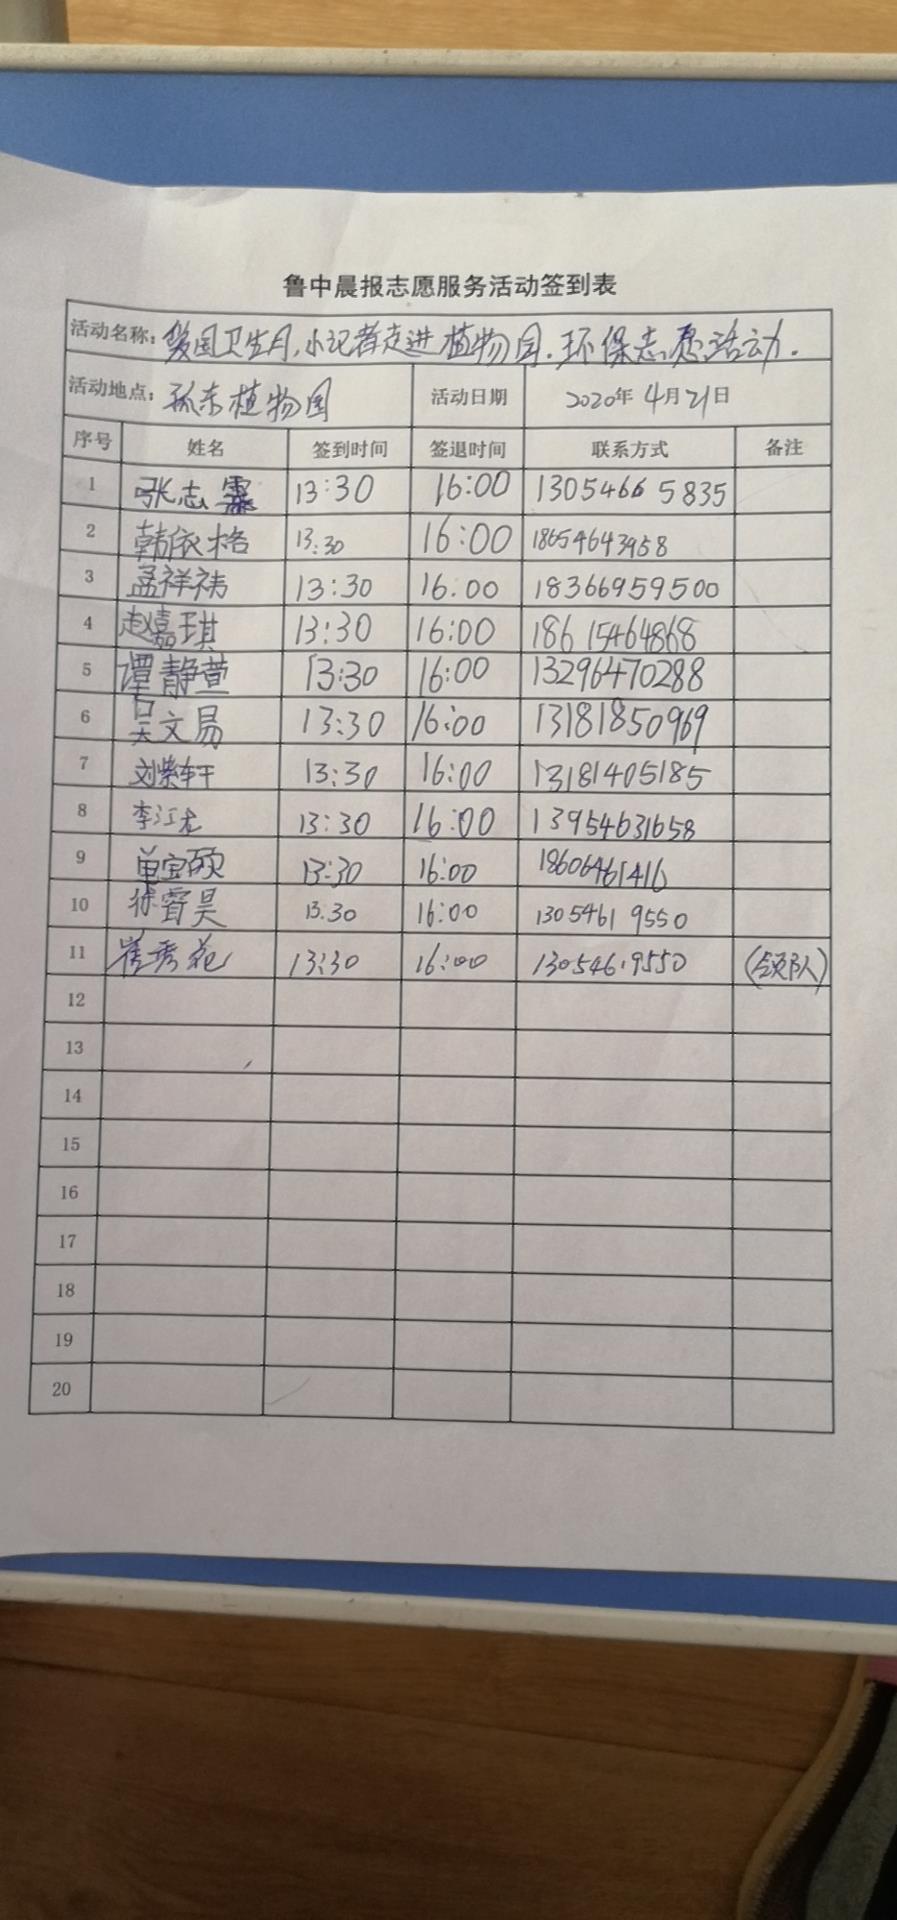 鲁中晨报志愿服务活动签到表
活动名称: 爱国卫生月,小记者走进植物园.环保志愿活动.
活动地点: 孤东植物园 活动日期 2020年4月21日
序号 姓名 签到时间 签退时间 联系方式 备注
1 张志霖 13:30 16:00 13054665835
2 韩依格 13:30 16:00 18654643958
3 孟祥祎 13:30 16.00 18366959500
4 赵嘉琪 13:30 16:00 18615464868
5 谭静萱 13:30 16:00 13296470288
6 吴文易 13:30 16:00 13181850969
7 刘紫轩 13:30 16:00 13181405185
8 李江龙 13:30 16:00 13954631658
9 单宝硕 13:30 16:00 18606461416
10 徐睿昊 13.30 16:00 13054619550
11 崔秀花 13:30 16:00 13054619550 (领队)
12
13
14
15
16
17
18
19
20